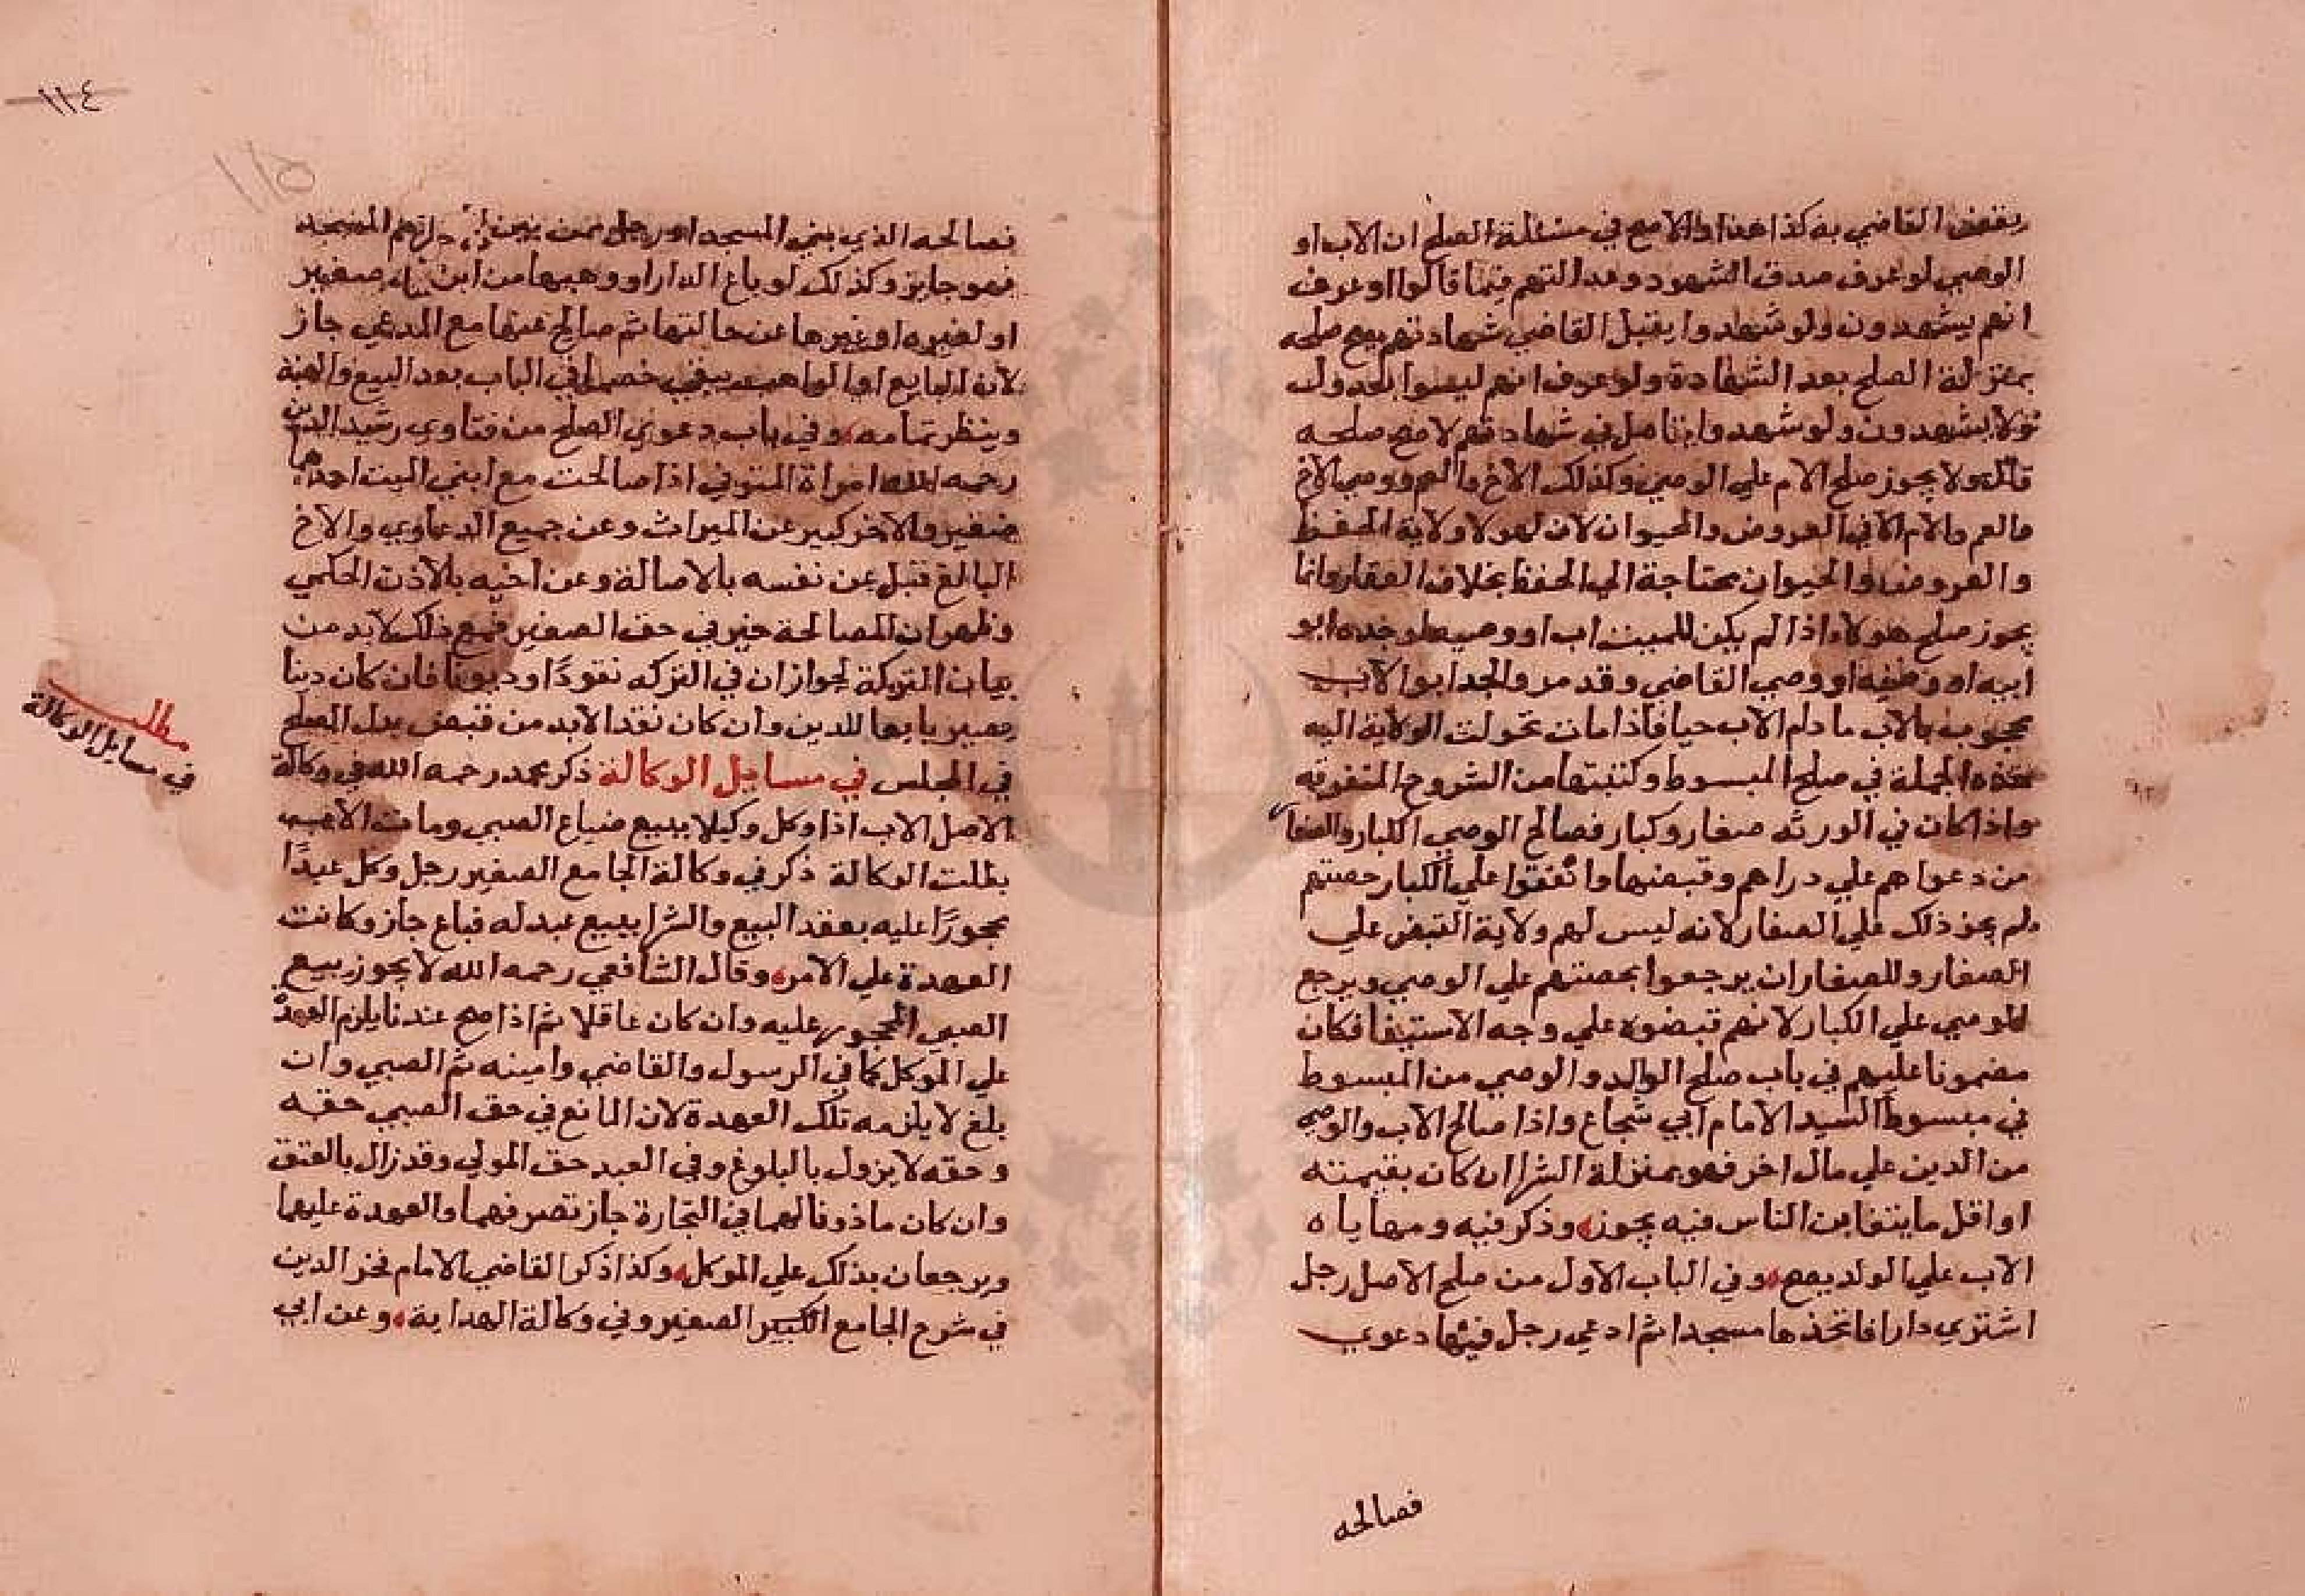 القاضي به كذا هذا والاصح في مسئلة الصلح ان الاب او
الوصي لو عرف صدق الشهود وعدالتهم فيما قالوا او عرف
انهم يشهدون ولو شهدوا يقبل القاضي شهادتهم يصح صلحه
بمنزلة الصلح بعد الشهادة ولو عرف انهم ليسوا بعدول
لا يشهدون ولو شهدوا في شهادتهم لا يصح صلحه
قال ولا يجوز صلح الام علي الوصي وكذلك الاخ والعم ووصي الاخ
والعم والام الا في العروض والحيوان لان لهولا ولاية الحفظ
والعروض والحيوان محتاجة الي الحفظ بخلاف العقار وانما
يجوز صلح هولاء اذا لم يكن للميت اب او وصيه او جده ابو
ابيه او وصيه او وصي القاضي وقد مر والجد ابو الاب
محجوب بالاب ما دام الاب حيا فاذا مات تحولت الولاية اليه
هذه الجملة في صلح المبسوط وكتبتها من الشروح المتفرقه
واذا كان في الورثه صغار وكبار فصالح الوصي الكبار والصغا
من دعواهم علي دراهم وقبضها وانفقوا علي الكبار حصتهم
لم يجز ذلك علي الصغار لانه ليس لهم ولاية القبض علي
الصغار وللصغار ان يرجعوا بحصتهم علي الوصي ويرجع
الوصي علي الكبار لانهم قبضوه علي وجه الاستيفا فكان
مضمونا عليهم في باب صلح الوالد والوصي من المبسوط
في مبسوط السيد الامام ابي شجاع واذا صالح الاب والوصي
من الدين علي مال اخر فهو بمنزلة الشرا ان كان بقيمته
او اقل ما يتغابن الناس فيه يجوز وذكر فيه ومهاياه
الاب علي الولد يصح وفي الباب الاول من صلح الاصل رجل
اشتري دارا فاتخذها مسجدا ثم ادعي رجل فيها دعوي
فصالحه
١١٤
١١٥
فصالحه الذي بني المسجد او رجل ممن بين المسجد
فهو جايز وكذلك لو باع الدار او وهبها من ابن صغير
او لغيره او غيرها عن حالتها ثم صالح عنها مع المدعي جاز
لان البايع او الواهب يبقي خصما في الباب بعد البيع والهبة
وينظر تمامه وفي باب دعوي الصلح من فتاوي رشيد الدين
رحمه الله امراة المتوفي اذا صالحت مع ابني الميت احدهما
صغير والاخر كبير عن الميراث وعن جميع الدعاوي والاخ
البالغ قبل عن نفسه بالاصالة وعن اخيه بالاذن الحكمي
وظهر ان المصالحة خير في حق الصغير فمع ذلك لا بد من
بيان التركة لجواز ان في التركه نقودًا وديونا فان كان دينا
يصير بايعا للدين وان كان نقدا لا بد من قبض بدل الصلح
في المجلس في مسايل الوكالة ذكر محمد رحمه الله في وكالة
الاصل الاب اذا وكل وكيلا ببيع ضياع الصبي ومات الاب
بطلت الوكالة ذكر في وكالة الجامع الصغير رجل وكل عبدًا
محجورًا عليه بعقد البيع والشرا ببيع عبد له فباع جاز وكانت
العهدة علي الامر وقال الشافعي رحمه الله لا يجوز بيع
الصبي المحجور عليه وان كان عاقلا ثم اذا صح عندنا يلزم العهدة
علي الموكل كما في الرسول والقاضي وامينه ثم الصبي وان
بلغ لا يلزمه تلك العهدة لان المانع في حق الصبي حقه
وحقه لا يزول بالبلوغ وفي العبد حق المولي وقد زال بالعتق
وان كان ماذونا لهما في التجارة جاز تصرفهما والعهدة عليهما
ويرجعان بذلك علي الموكل وكذا ذكر القاضي الامام فخر الدين
في شرح الجامع الكبير الصغير وفي وكالة الهداية وعن ابي
مطلب
في مسايل الوكالة